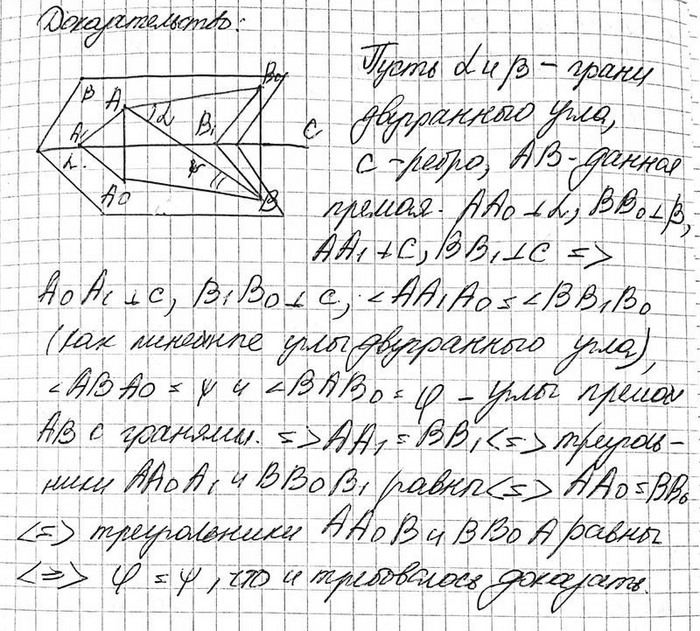 Доказательство:
B A L B₀
A₁ B₁ C
L. ψ
A₀ B
Пусть α и β – грани
двугранного угла,
с – ребро, AB – данная
премая. AA₀ ⊥ α, BB₀ ⊥ β,
AA₁ ⊥ C, BB₁ ⊥ C =>
A₀A₁ ⊥ C, B₁B₀ ⊥ C, <AA₁A₀ = <BB₁B₀
(как линейные углы двугранного угла),
<ABA₀ = ψ и <BAB₀ = φ – углы премой
AB с гранями. => AA₁ = BB₁ <=> треуголь-
ники AA₀A₁ и BB₀B₁ равны <=> AA₀ = BB₀
<=> треугольники AA₀B и BB₀A равны
<=> φ = ψ, что и требовалось доказать.